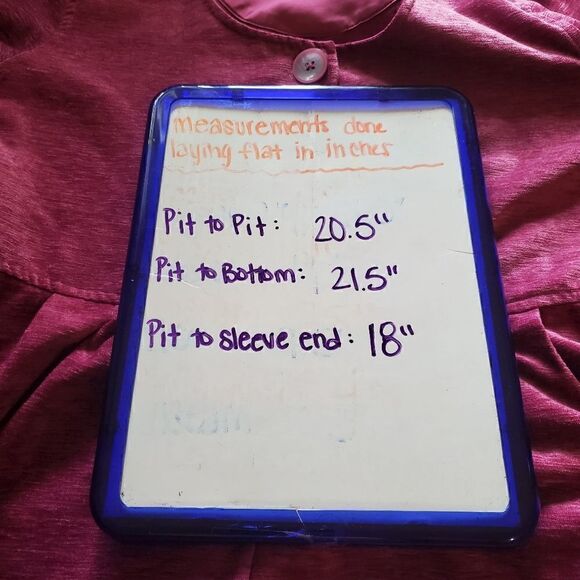 measurements done
laying flat in inches
Pit to Pit: 20.5"
Pit to Bottom: 21.5"
Pit to sleeve end: 18"